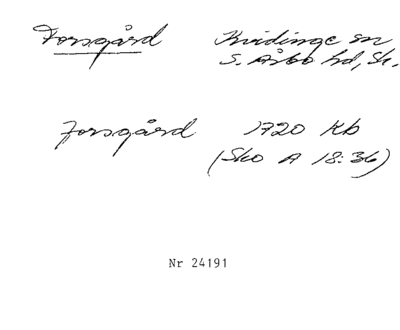 Forsgård Kvidinge sn
S. Åsbo hd, Sk.
Forsgård 1720 Kb
(Sko A 18:36)
Nr 24191